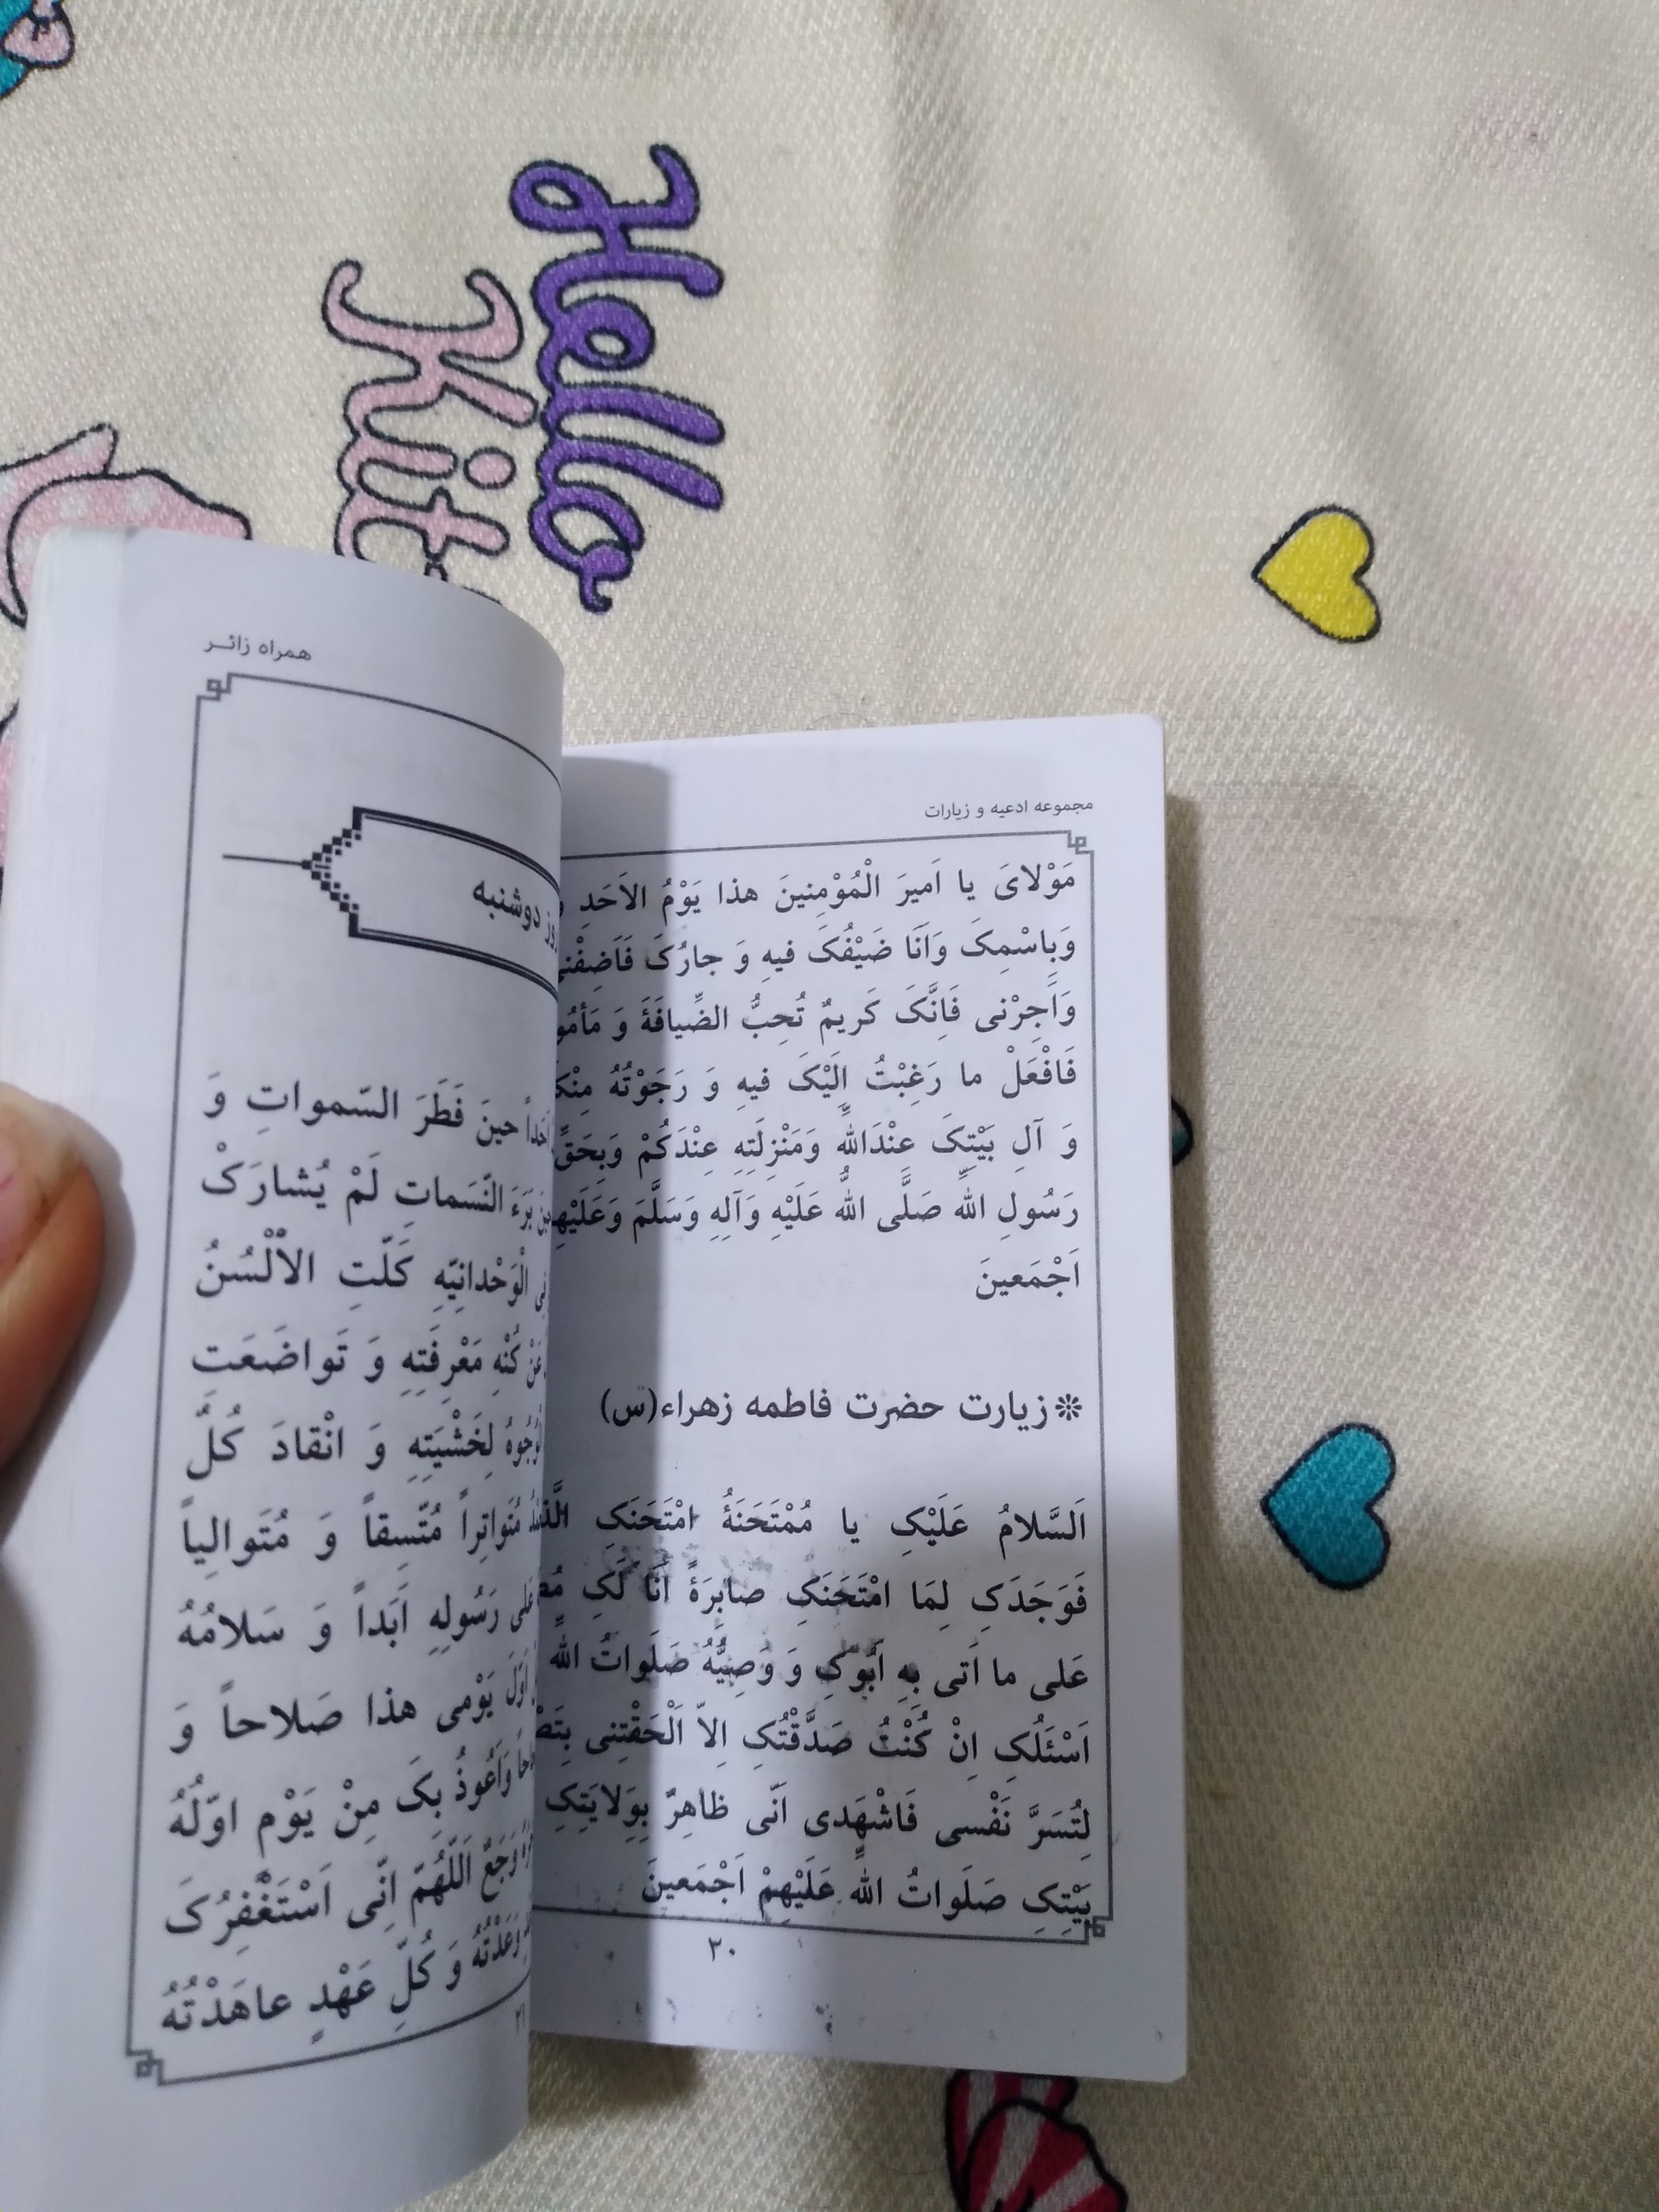 Hello
Kit
مجموعه ادعیه و زیارات
مَوْلایَ یا اَمیرَ الْمُؤْمِنینَ هذا یَوْمُ الاَحَدِ
وَبِاسْمِکَ وَاَنَا ضَیْفُکَ فیهِ وَ جارُکَ فَاَضِفْنی
وَاَجِرْنی فَاِنَّکَ کَریمٌ تُحِبُّ الضِّیافَةَ وَ
فَافْعَلْ ما رَغِبْتُ اِلَیْکَ فیهِ وَ رَجَوْتُهُ
وَ آلِ بَیْتِکَ عِنْدَاللّٰهِ وَمَنْزِلَتِهِ عِنْدَکُمْ وَبِحَقِّ
رَسُولِ اللّٰهِ صَلَّی اللّٰهُ عَلَیْهِ وَآلِهِ وَسَلَّمَ
اَجْمَعینَ
❊زیارت حضرت فاطمه زهراء(س)
اَلسَّلامُ عَلَیْکِ یا مُمْتَحَنَةُ امْتَحَنَکِ
فَوَجَدَکِ لِمَا امْتَحَنَکِ صابِرَةً اَنَا لَکِ
عَلی ما اَتی بِهِ اَبُوکِ وَ وَصِیُّهُ صَلَواتُ اللّٰهِ
اَسْئَلُکِ اِنْ کُنْتُ صَدَّقْتُکِ اِلاّ اَلْحَقْتِنی
لِتُسَرَّ نَفْسی فَاشْهَدی اَنّی ظاهِرٌ بِوِلایَتِکِ
بَیْتِکِ صَلَواتُ اللّٰهِ عَلَیْهِمْ اَجْمَعینَ
۳۰
همراه زائـــر
دوشنبه
حینَ فَطَرَ السّمواتِ وَ
بَرَءَ النّسَماتِ لَمْ یُشارَکْ
الْوَحْدانِیّهِ کَلّتِ الاَْلْسُنُ
عَنْ کُنْهِ مَعْرِفَتِهِ وَ تَواضَعَتِ
لِخَشْیَتِهِ وَ انْقادَ کُلُّ
مُتَواتِراً مُتّسِقاً وَ مُتَوالِیاً
رَسُولِهِ اَبَداً وَ سَلامُهُ
اَوّلَ یَوْمی هذا صَلاحاً وَ
وَاَعُوذُ بِکَ مِنْ یَوْمٍ اوّلُهُ
وَجَعٌ اَللّهُمّ اِنّی اَسْتَغْفِرُکَ
وَعَدْتُهُ وَ کُلِّ عَهْدٍ عاهَدْتُهُ